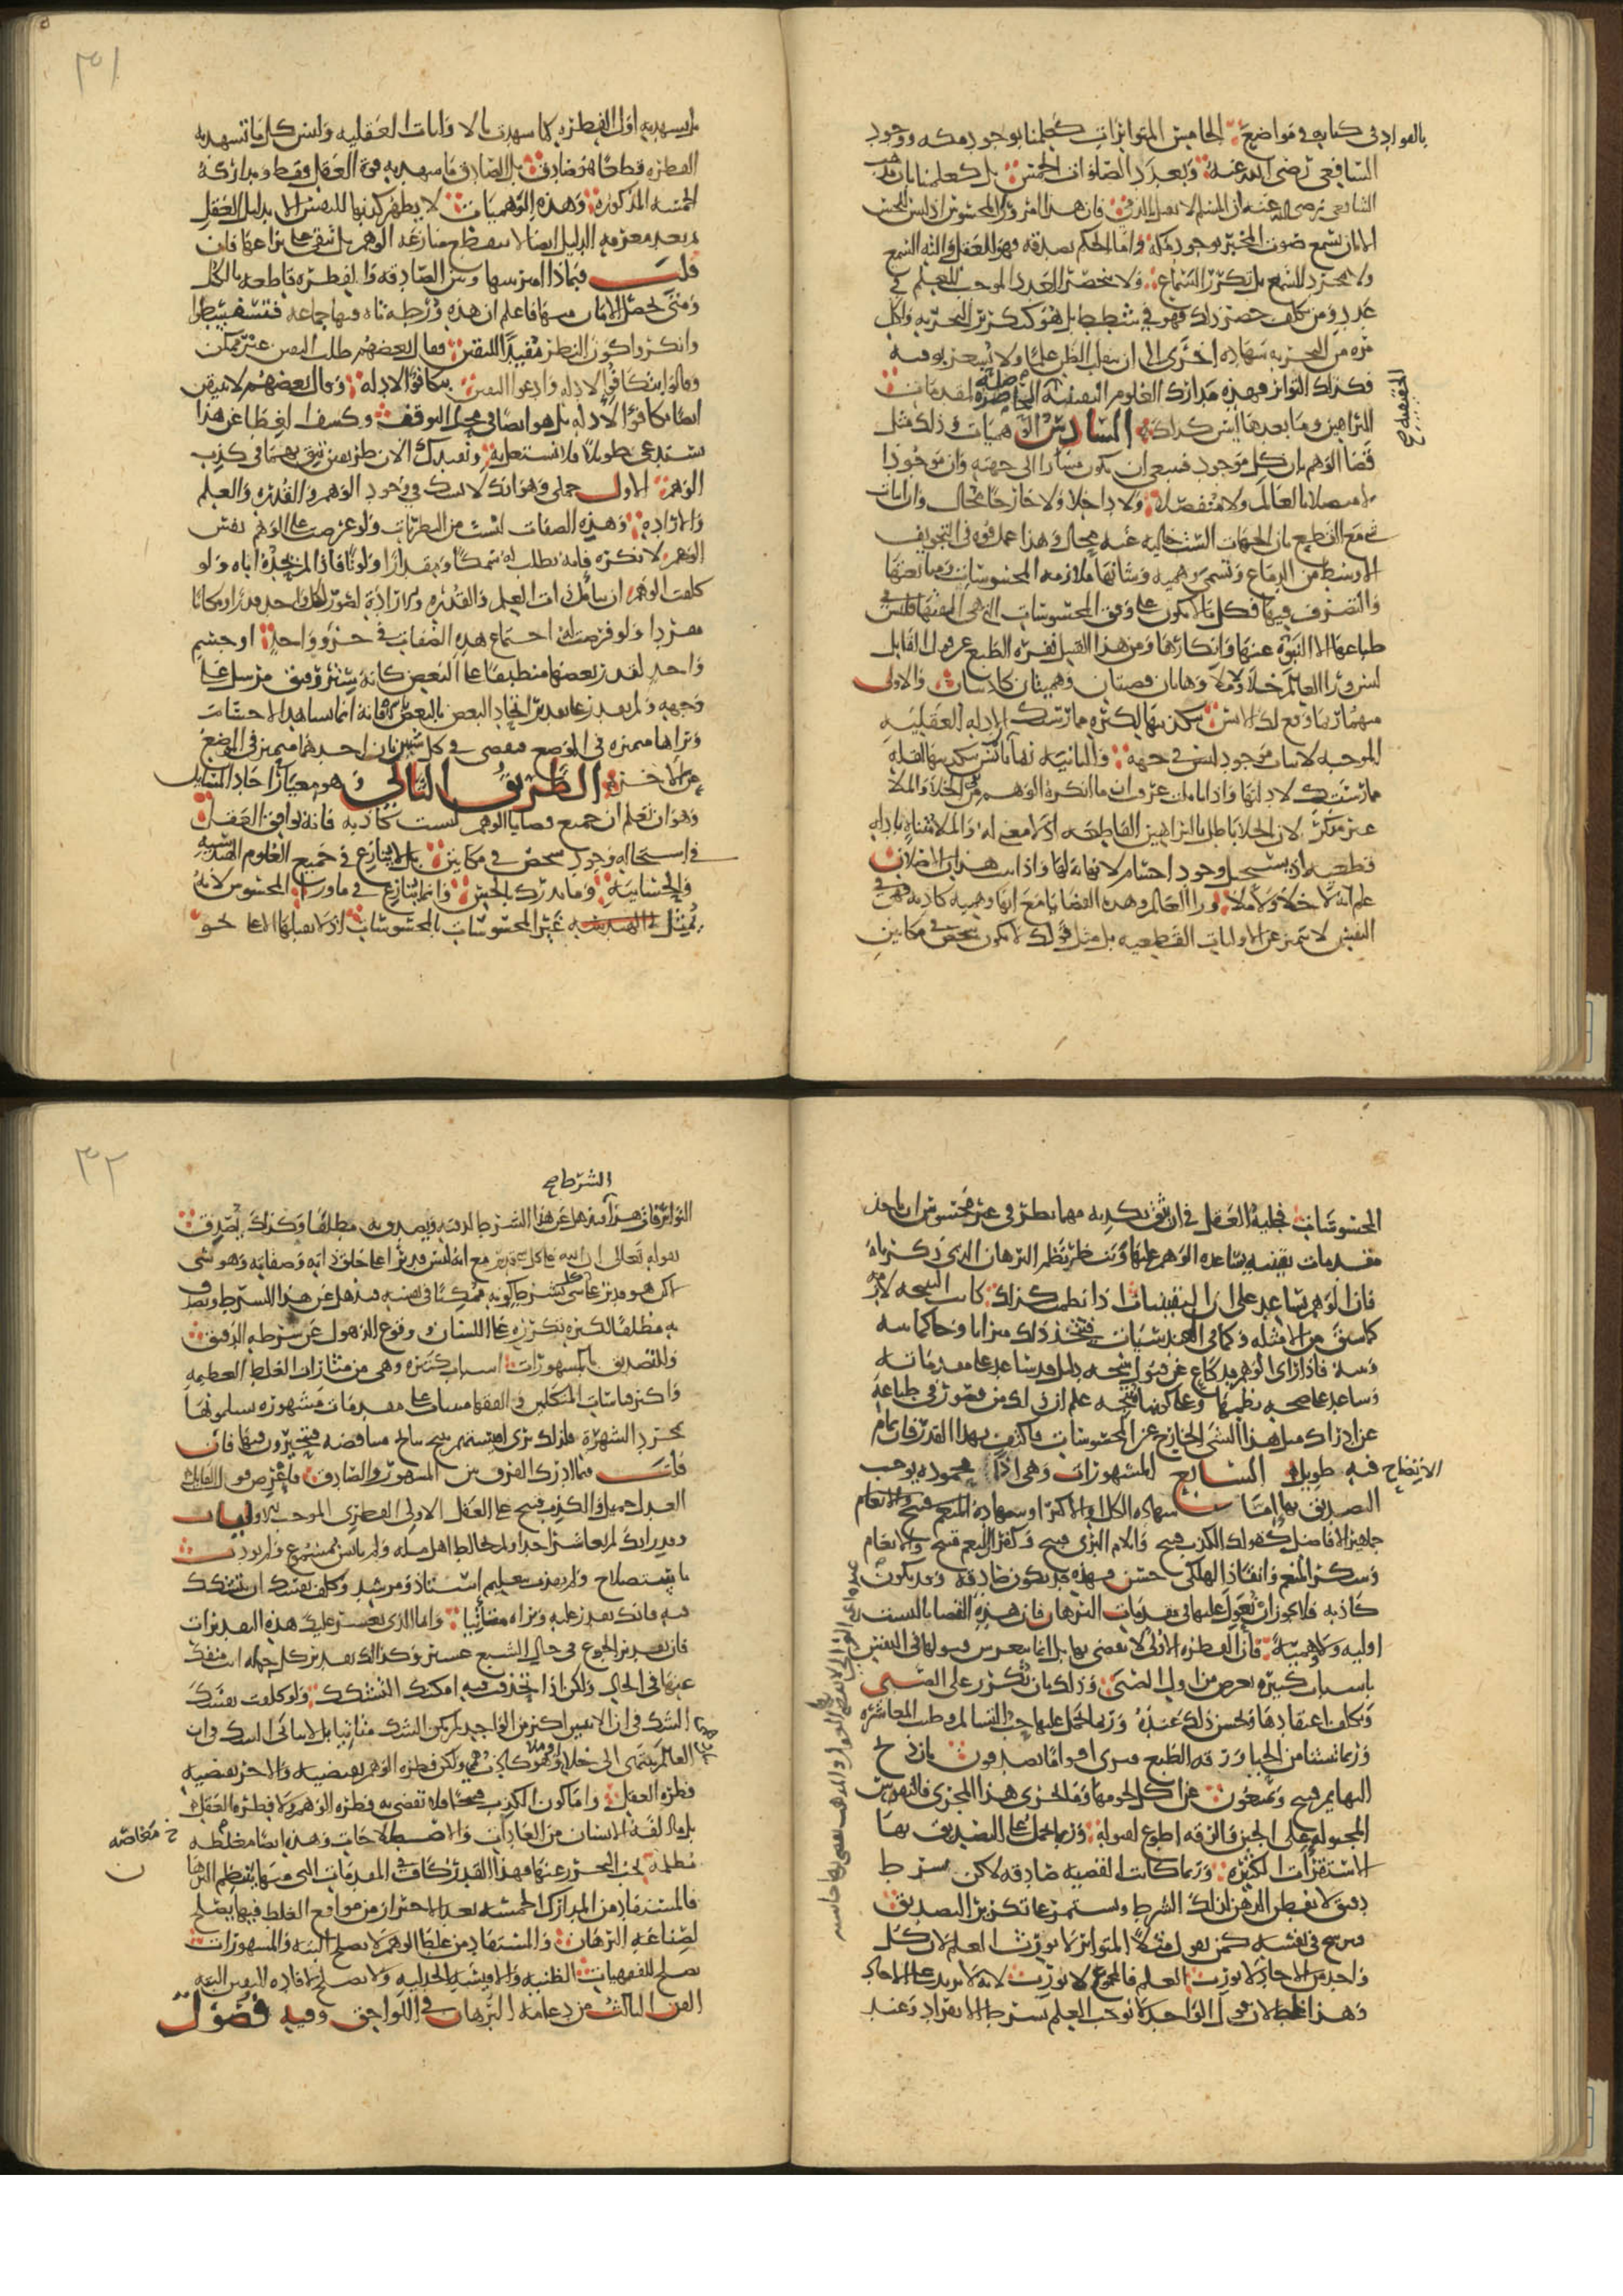 بالموارد في كتابه في مواضع الخامس المتواترات كعلمنا بوجود مكه ووجود
الشافعي رضي الله عنه وبعدد الصلوات الخمس بل كعلمنا بان مذهب
الشافعي رضي الله عنه ان المسلم لا يقتل بالذمي فان هذا امر ورا المحسوس اذ ليس للحس
الا ان يسمع صوت المخبر بوجود مكه واما الحكم بصدقه فهو للعقل والته السمع
ولا مجرد السمع بل تكرر السماع ولا ينحصر العدد الموجب للعلم في
عدد ومن تكلف حصر ذلك فهو في شطط بل هو كتكرر التجربه ولكل
مره من التجربه شهاده اخرى الى ان ينقلب الظن علما ولا يشعر بوقته
فكذلك التواتر فهذه مدارك العلوم اليقينيه الحاصله لمقدمات
الحقيقيه
البراهين وما بعدها ليس كذلك السادس الوهميات وذلك مثل
قضا الوهم بان كل موجود فينبغي ان يكون مشارا الى جهته وان موجودا
لا متصلا بالعالم ولا منفصلا ولا داخلا ولا خارجا محال وان اثبات
شي مع القطع بان الجهات الست خاليه عنه محال وهذا عمل قوه في التجويف
الاوسط من الدماغ وتسمى وهميه وشانها ملازمه المحسوسات ومتابعتها
والتصرف فيها فكل ما لا يكون على وفق المحسوسات التي هي الفتها فليس في
طباعها الا النبوه عنها وانكارها ومن هذا القبيل نفره الطبع عن قول القايل
ليس ورا العالم خلا ولا ملا وهاتان قضيتان وهميتان كاذبتان والاولى
منهما ربما وقع لك الانس بتكذيبها لكثره ممارستك الادله العقليه
الموجبه لاثبات موجود ليس في جهه والثانيه ربما لم تانس بتكذيبها لقله
ممارستك لادلتها واذا تاملت عرفت ان ما انكره الوهم من نفي الخلا والملا
غير ممكن لان الخلا باطل بالبراهين القاطعه اذ لا معنى له والملا متناه بادله
قطعيه اذ يستحيل وجود اجسام لا نهايه لها واذا ثبت هذان الاصلان
علم انه لا خلا ولا ملا ورا العالم وهذه القضايا مع انها وهميه كاذبه فهي في
النفس لا تتميز عن الاوليات القطعيه بل مثل قولك لا يكون شخص في مكانين
٣١
بل يشهد به اول الفطره كما يشهد بالاوليات العقليه وليس كل ما تشهد به
الفطره قطعا هو صادق بل الصادق ما يشهد به قوه العقل فقط ومداركه
الخمسه المذكوره وهذه الوهميات لا يظهر كذبها للنفس الا بدليل العقل
ثم بعد معرفه الدليل ايضا لا تنقطع منازعه الوهم بل تبقى على نزاعها فان
قلت فبماذا اميز بينها وبين الصادقه والفطره قاطعه بالكل
ومتى يحصل الامان منها فاعلم ان هذه ورطه تاه فيها جماعه فتسفسطوا
وانكروا كون النظر مفيدا لليقين فقال بعضهم طلب اليقين غير ممكن
وقالوا بتكافو الادله وادعوا اليقين بتكافو الادله وقال بعضهم لا تيقن
ايضا بتكافو الادله بل هو ايضا في محل التوقف وكشف الغطا عن هذا
يستدعي تطويلا فلا نشتغل به ونفيدك الان طريقين تثق بهما في كذب
الوهم الاول جملي وهو انك لا تشك في وجود الوهم والقدره والعلم
والاراده وهذه الصفات ليست من النظريات ولو عرضت على الوهم نفس
الوهم لانكره فانه يطلب له سمكا ومقدارا ولونا فاذا لم يجده اباه ولو
كلفت الوهم ان يتامل ذات العلم والقدره والاراده لصور لكل واحد قدرا ومكانا
مفردا ولو فرضت له اجتماع هذه الصفات في جزو واحد او جسم
واحد لقدر بعضها منطبقا على البعض كانه ستر رقيق مرسل على
وجهه ولم يقدر على تقدير اتحاد البعض بالبعض باسره فانه انما يشاهد الاجسام
ويراها متميزه في الوضع فيقضي في كل شيئين بان احدهما متميز في الوضع
عن الاخر الطريق الثاني وهو معيار في احاد المسايل
وهو ان تعلم ان جميع قضايا الوهم ليست كاذبه فانه يوافق العقل
في استحاله وجود شخص في مكانين بل لا ينازع في جميع العلوم الهندسيه
والحسابيه وما يدرك بالحس وانما ينازع في ما ورا المحسوس لانه
يمثل غير المحسوسات بالمحسوسات اذ لا يقبلها الا على نحو
المحسوسات فحيله العقل في ان يثق بكذبه مهما نظر في غير محسوس ان ياخذ
مقدمات يقينيه يساعده الوهم عليها وينظمها نظم البرهان الذي ذكرناه
فان الوهم يساعد على ان اليقينيات اذا نظمت كذلك كانت النتيجه لازمه
كما سبق من الامثله وكما في الهندسيات فيتخذ ذلك ميزانا وحاكما بينه
وبينه فاذا راى الوهم قد كاع عن قبول نتيجه دليل قد ساعد على مقدماته
وساعد على صحه نظمها وعلى كونها نتيجه علم ان ذلك من قصور في طباعه
عن ادراك مثل هذا الشي الخارج عن المحسوسات فاكتف بهذا القدر فان تمام
الايضاح فيه طويل السابع المشهورات وهي ارا محموده يوجب
التصديق بها اما شهاده الكل او الاكثر او شهاده
جماهير الافاضل كقولك الكذب قبيح وايلام البري قبيح وكفران النعم قبيح والانعام
وشكر المنعم وانقاذ الهلكى حسن وهذه قد تكون صادقه وقد تكون
كاذبه فلا يجوز ان يعول عليها في مقدمات البرهان فان هذه القضايا ليست
اوليه ولا وهميه فان الفطره الاولى لا تقضي بها بل انما ينغرس قبولها في النفس
باسباب كثيره تعرض من اول الصبى وذلك بان تكرر على الصبي
ويكلف اعتقادها ويحسن ذلك عنده وربما يحمل عليها حب التسالم وطيب المعاشره
وربما تنشا من الجبا ورقه الطبع فترى اقواما يصدقون بان ذبح
البهايم قبيح ويمتنعون عن اكل لحومها وما يجري هذا المجرى فالنفوس
المجبوله على الجبن والرقه اطوع لقبوله وربما يحمل على التصديق بها
الاستقرات الكثيره وربما كانت القضيه صادقه لاكن بشرط
دقيق لا يفطن الذهن لذلك الشرط ويستمر على تكرير التصديق
فيرسخ في نفسه كمن يقول مثلا المتواتر لا يورث العلم لان كل
واحد من الاحاد لا يورث العلم فالمجموع لا يورث لانه لا يزيد على الاحاد
وهذا غلط لان قول الواحد لا يوجب العلم بشرط الانفراد وعند
٣٢
الشرط صح
التواتر فات هذا فيذهل عن هذا الشرط لدقته ويصدق به مطلقا وكذلك يصدق
بقوله تعالى ان الله على كل شي قدير مع انه ليس قديرا على خلق ذاته وصفاته وهو شي
لكن هو قدير على كل شي بشرط كونه ممكنا في نفسه فيذهل عن هذا الشرط ويصدق
به مطلقا لكثره تكرره على اللسان ووقوع الذهول عن شرطه الدقيق
وللتصديق بالمشهورات اسباب كثيره وهي من مثارات الغلط العظيمه
واكثر قياسات المتكلمين والفقها مبنيات على مقدمات مشهوره يسلمونها
بمجرد الشهره فلذلك ترى اقيستهم تنتج نتايج متناقضه فيتحيرون فيها فان
قلت فما ادرك الفرق بين المشهور والصادق فاعرض قول القايل
العدل جميل والكذب قبيح على العقل الاولى الفطري الموجب للاوليات
وقدر انك لم تعاشر احدا ولم تخالط اهل مله ولم تانس بمسموع ولم تودب
باستصلاح ولم تهذب بتعليم استاذ ومرشد وكلف نفسك ان تتشكك
فيه فانك تقدر عليه وتراه متاتيا واما الذي يعسر عليك هذه التقديرات
فان تقدير الجوع في حال الشبع عسير وكذلك تقدير كل حاله انت منفك
عنها في الحال ولكن اذا تحذقت فيه امكنك التشكك ولو كلفت نفسك
الشك في ان الاثنين اكثر من الواحد لم يكن الشك متاتيا بل لا يتاتى الشك في ان
العالم ينتهي الى خلا او ملا وهو كاذب وهمي ولكن فطره الوهم يقتضيه والاخر يقتضيه
فطره العقل واما كون الكذب قبيحا فلا تقضي به فطره الوهم ولا فطره العقل
بل ما الفه الانسان من العادات والاصطلاحات وهذه ايضا مغلطه
مظلمه يجب التحرز عنها فهذا القدر كاف في المقدمات التي منها ينتظم البرهان
فالمستفاد من المدارك الخمسه بعد الاحتراز من مواقع الغلط فيها يصلح
لصناعه البرهان والمستفاد من غلط الوهم لا يصلح البته والمشهورات
تصلح للفقهيات الظنيه والاقيسه الجدليه ولا تصلح لافاده اليقين البته
الفن الثالث من دعامه البرهان في اللواحق وفيه فصول